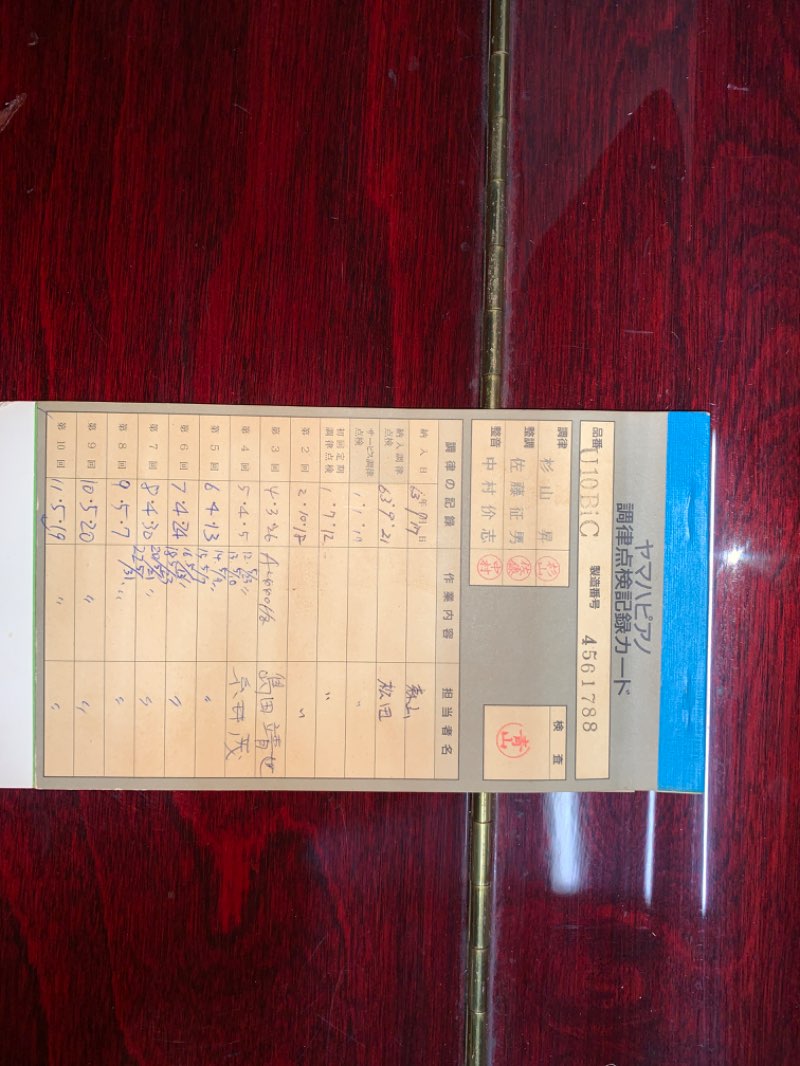 ヤマハピアノ
調律点検記録カード
品番 U10BiC 製造番号 4561788
調律 杉山 昇 杉山
整調 佐藤 征男 佐藤
整音 中村 份志 中村
検査
青山
調律の記録 作業内容 担当者名
納入日 63年9月17日 森山
納入調律点検 63・9・21 松田
サービス調律点検 〃
初回定期調律点検 1・7・12 〃
第2回 2・10・12 〃
第3回 4・3・26 A=440Hz 島田
第4回 5・4・5 〃
第5回 6・4・13 〃
第6回 7・4・24 〃
第7回 8・4・30 〃
第8回 9・5・7 〃 〃
第9回 10・5・20 〃 〃
第10回 11・5・19 〃 〃